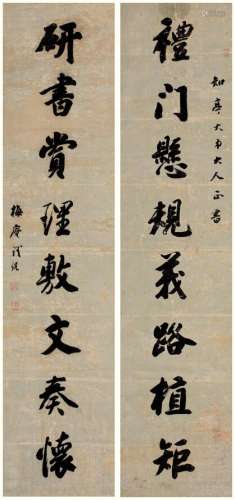 知亭大弟大人正書
禮門懸規義路植矩
研書賞理敷文奏懷
梅庵